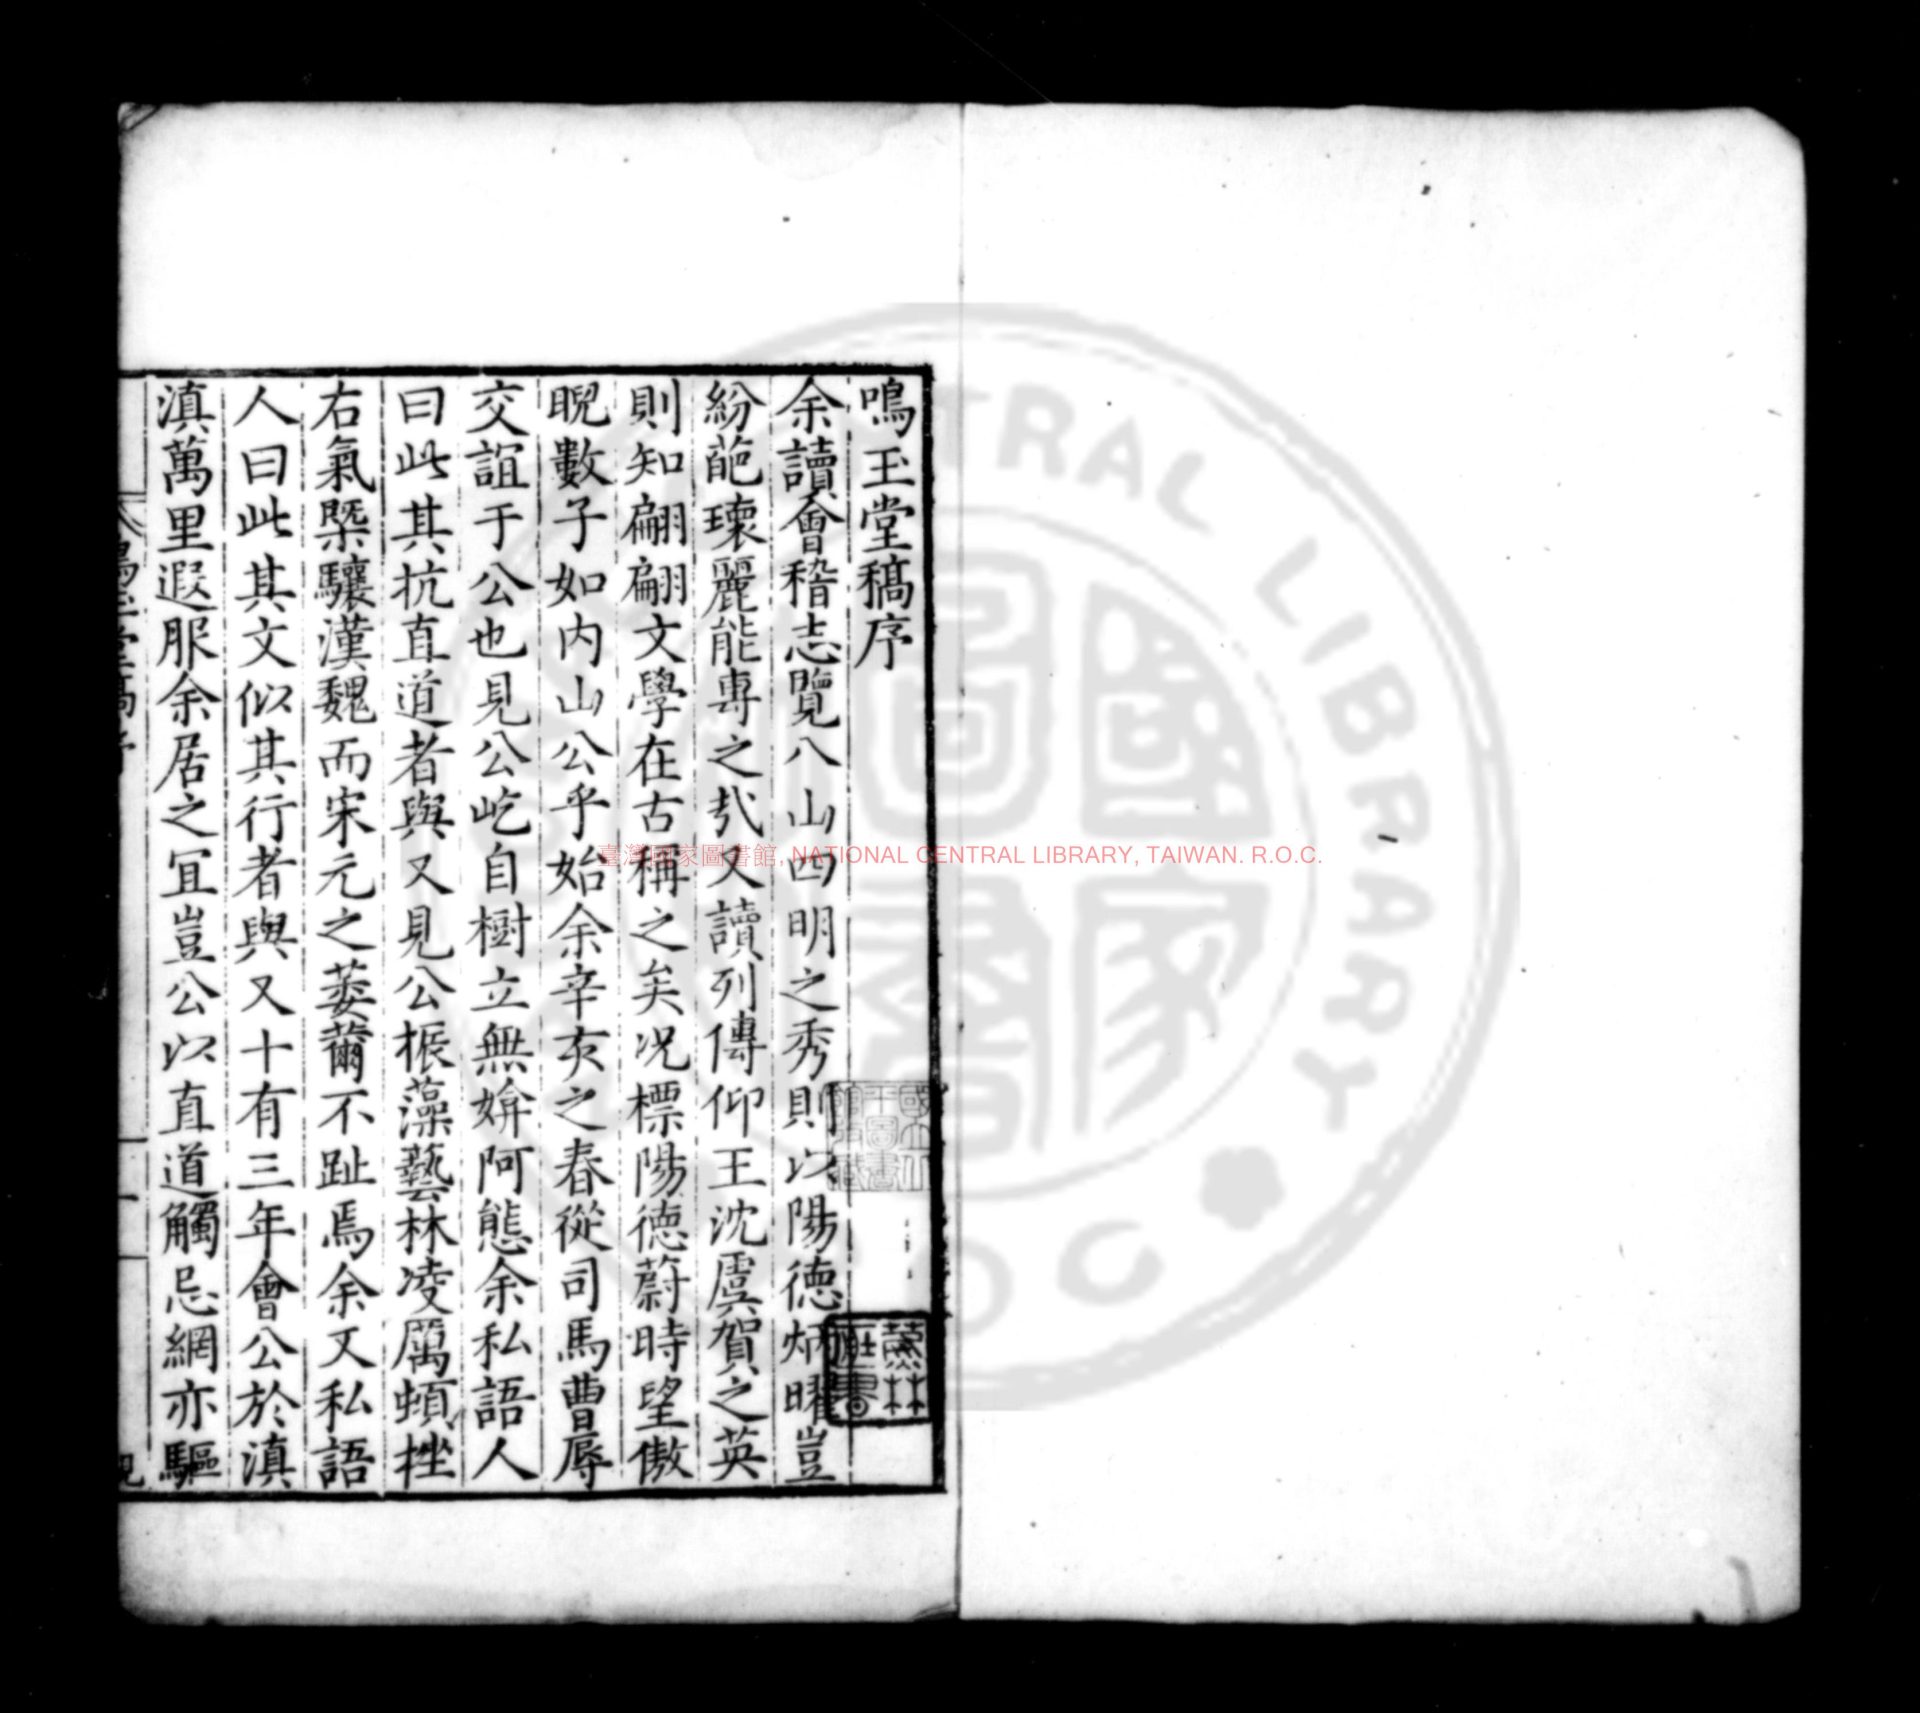 鳴玉堂稿序
余讀會稽志覽八山四明之秀則以陽德炳曜豈
紛葩瓌麗能專之㢤又讀列傳仰王沈虞賀之英
則知翩翩文學在古稱之矣况標陽德蔚時望傲
睨數子如内山公乎始余辛亥之春從司馬曹辱
交誼于公也見公屹自樹立無媕阿態余私語人
曰此其抗直道者與又見公振藻藝林凌厲頓挫
右氣槩驤漢魏而宋元之萎薾不趾焉余又私語
人曰此其文似其行者與又十有三年會公於滇
滇萬里遐服余居之冝豈公以直道觸忌網亦驅
臺灣國家圖書館, NATIONAL CENTRAL LIBRARY, TAIWAN. R.O.C.